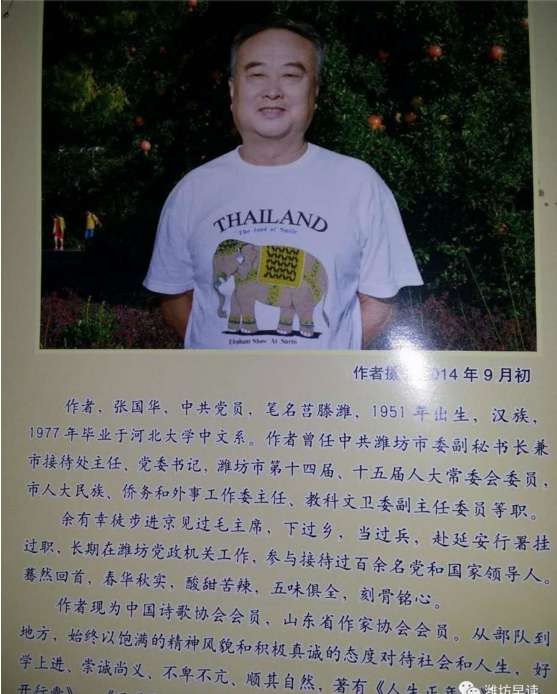 THAILAND
The Land of Smile
Elephant Show At Surin
作者摄 2014年9月初
作者，张国华，中共党员，笔名莒滕潍，1951年出生，汉族，
1977年毕业于河北大学中文系。作者曾任中共潍坊市委副秘书长兼
市接待处主任、党委书记，潍坊市第十四届、十五届人大常委会委员，
市人大民族、侨务和外事工作委主任、教科文卫委副主任委员等职。
余有幸徒步进京见过毛主席，下过乡，当过兵，赴延安行署挂
过职，长期在潍坊党政机关工作，参与接待过百余名党和国家领导人。
蓦然回首，春华秋实，酸甜苦辣，五味俱全，刻骨铭心。
作者现为中国诗歌协会会员，山东省作家协会会员。从部队到
地方，始终以饱满的精神风貌和积极真诚的态度对待社会和人生，好
学上进、崇诚尚义、不卑不亢、顺其自然，著有《人生正
潍坊早读